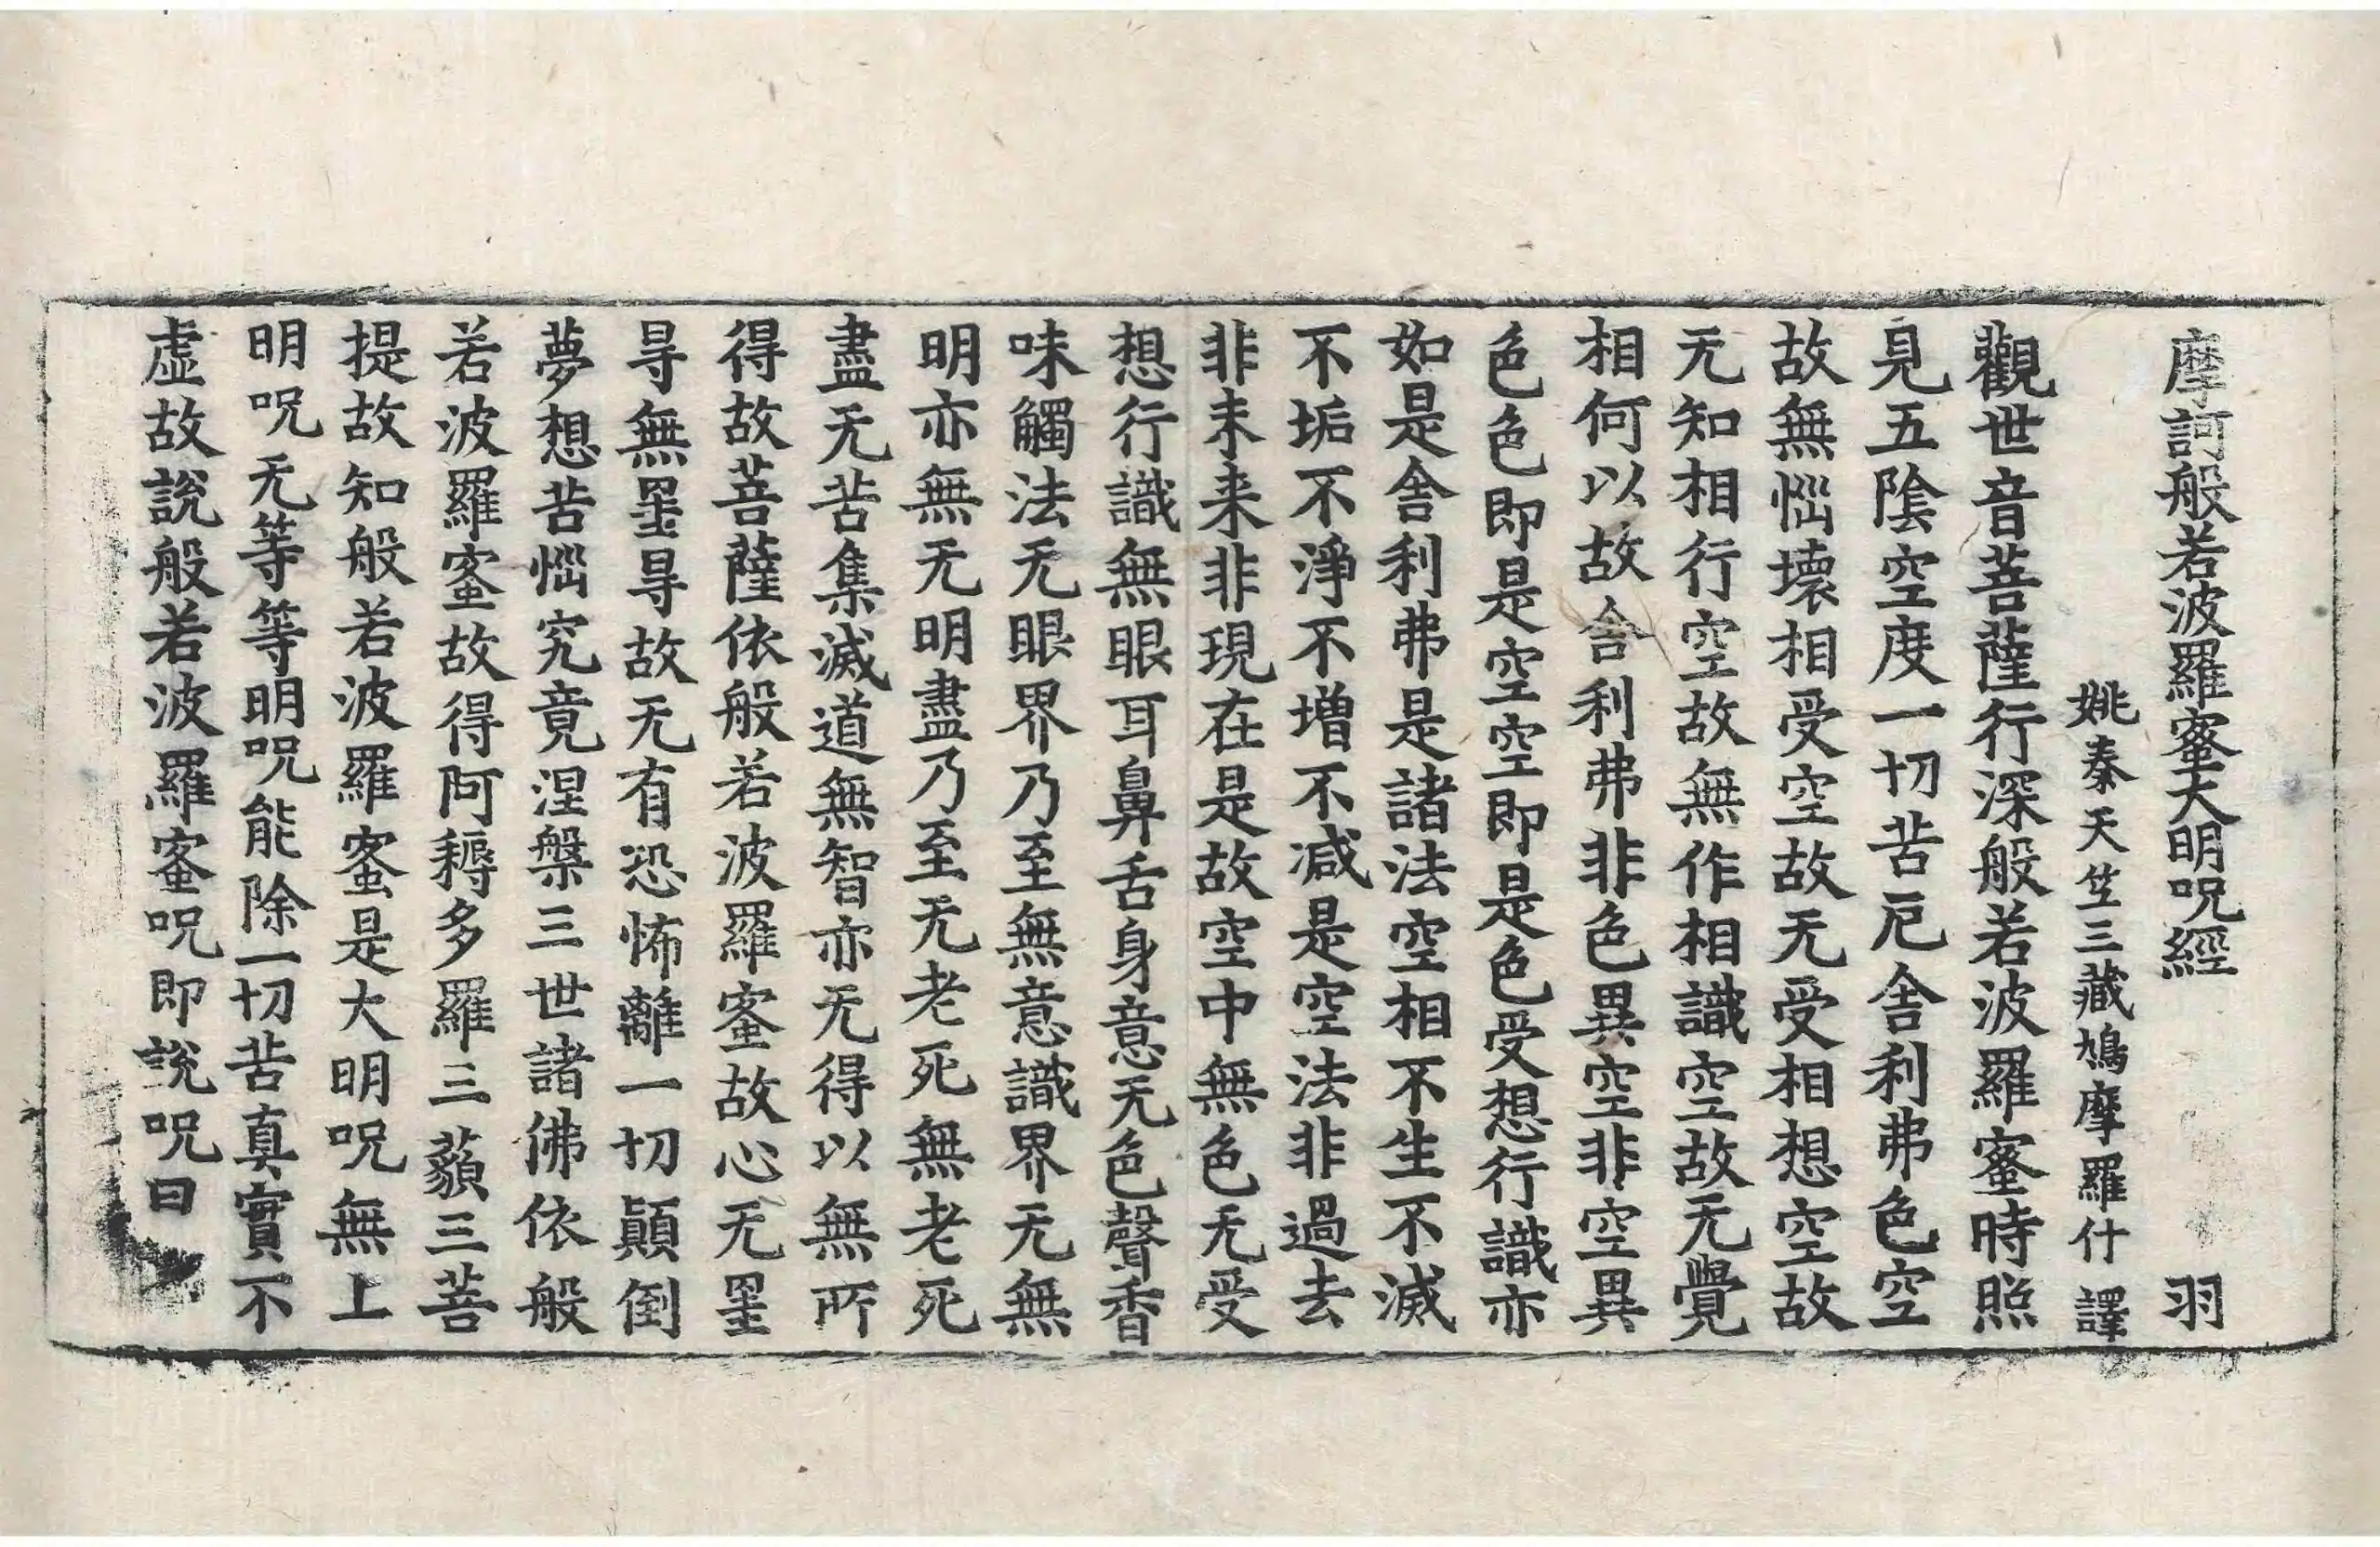 摩訶般若波羅蜜大明呪經 羽
姚秦天竺三藏鳩摩羅什 譯
觀世音菩薩行深般若波羅蜜時照
見五陰空度一切苦厄舍利弗色空
故無惱壞相受空故无受相想空故
无知相行空故無作相識空故无覺
相何以故舍利弗非色異空非空異
色色即是空空即是色受想行識亦
如是舍利弗是諸法空相不生不滅
不垢不淨不增不減是空法非過去
非未来非現在是故空中無色无受
想行識無眼耳鼻舌身意无色聲香
味觸法无眼界乃至無意識界无無
明亦無无明盡乃至无老死無老死
盡无苦集滅道無智亦无得以無所
得故菩薩依般若波羅蜜故心无罣
㝵無罣㝵故无有恐怖離一切顛倒
夢想苦惱究竟涅槃三世諸佛依般
若波羅蜜故得阿耨多羅三藐三菩
提故知般若波羅蜜是大明呪無上
明呪无等等明呪能除一切苦真實不
虛故說般若波羅蜜呪即說呪曰